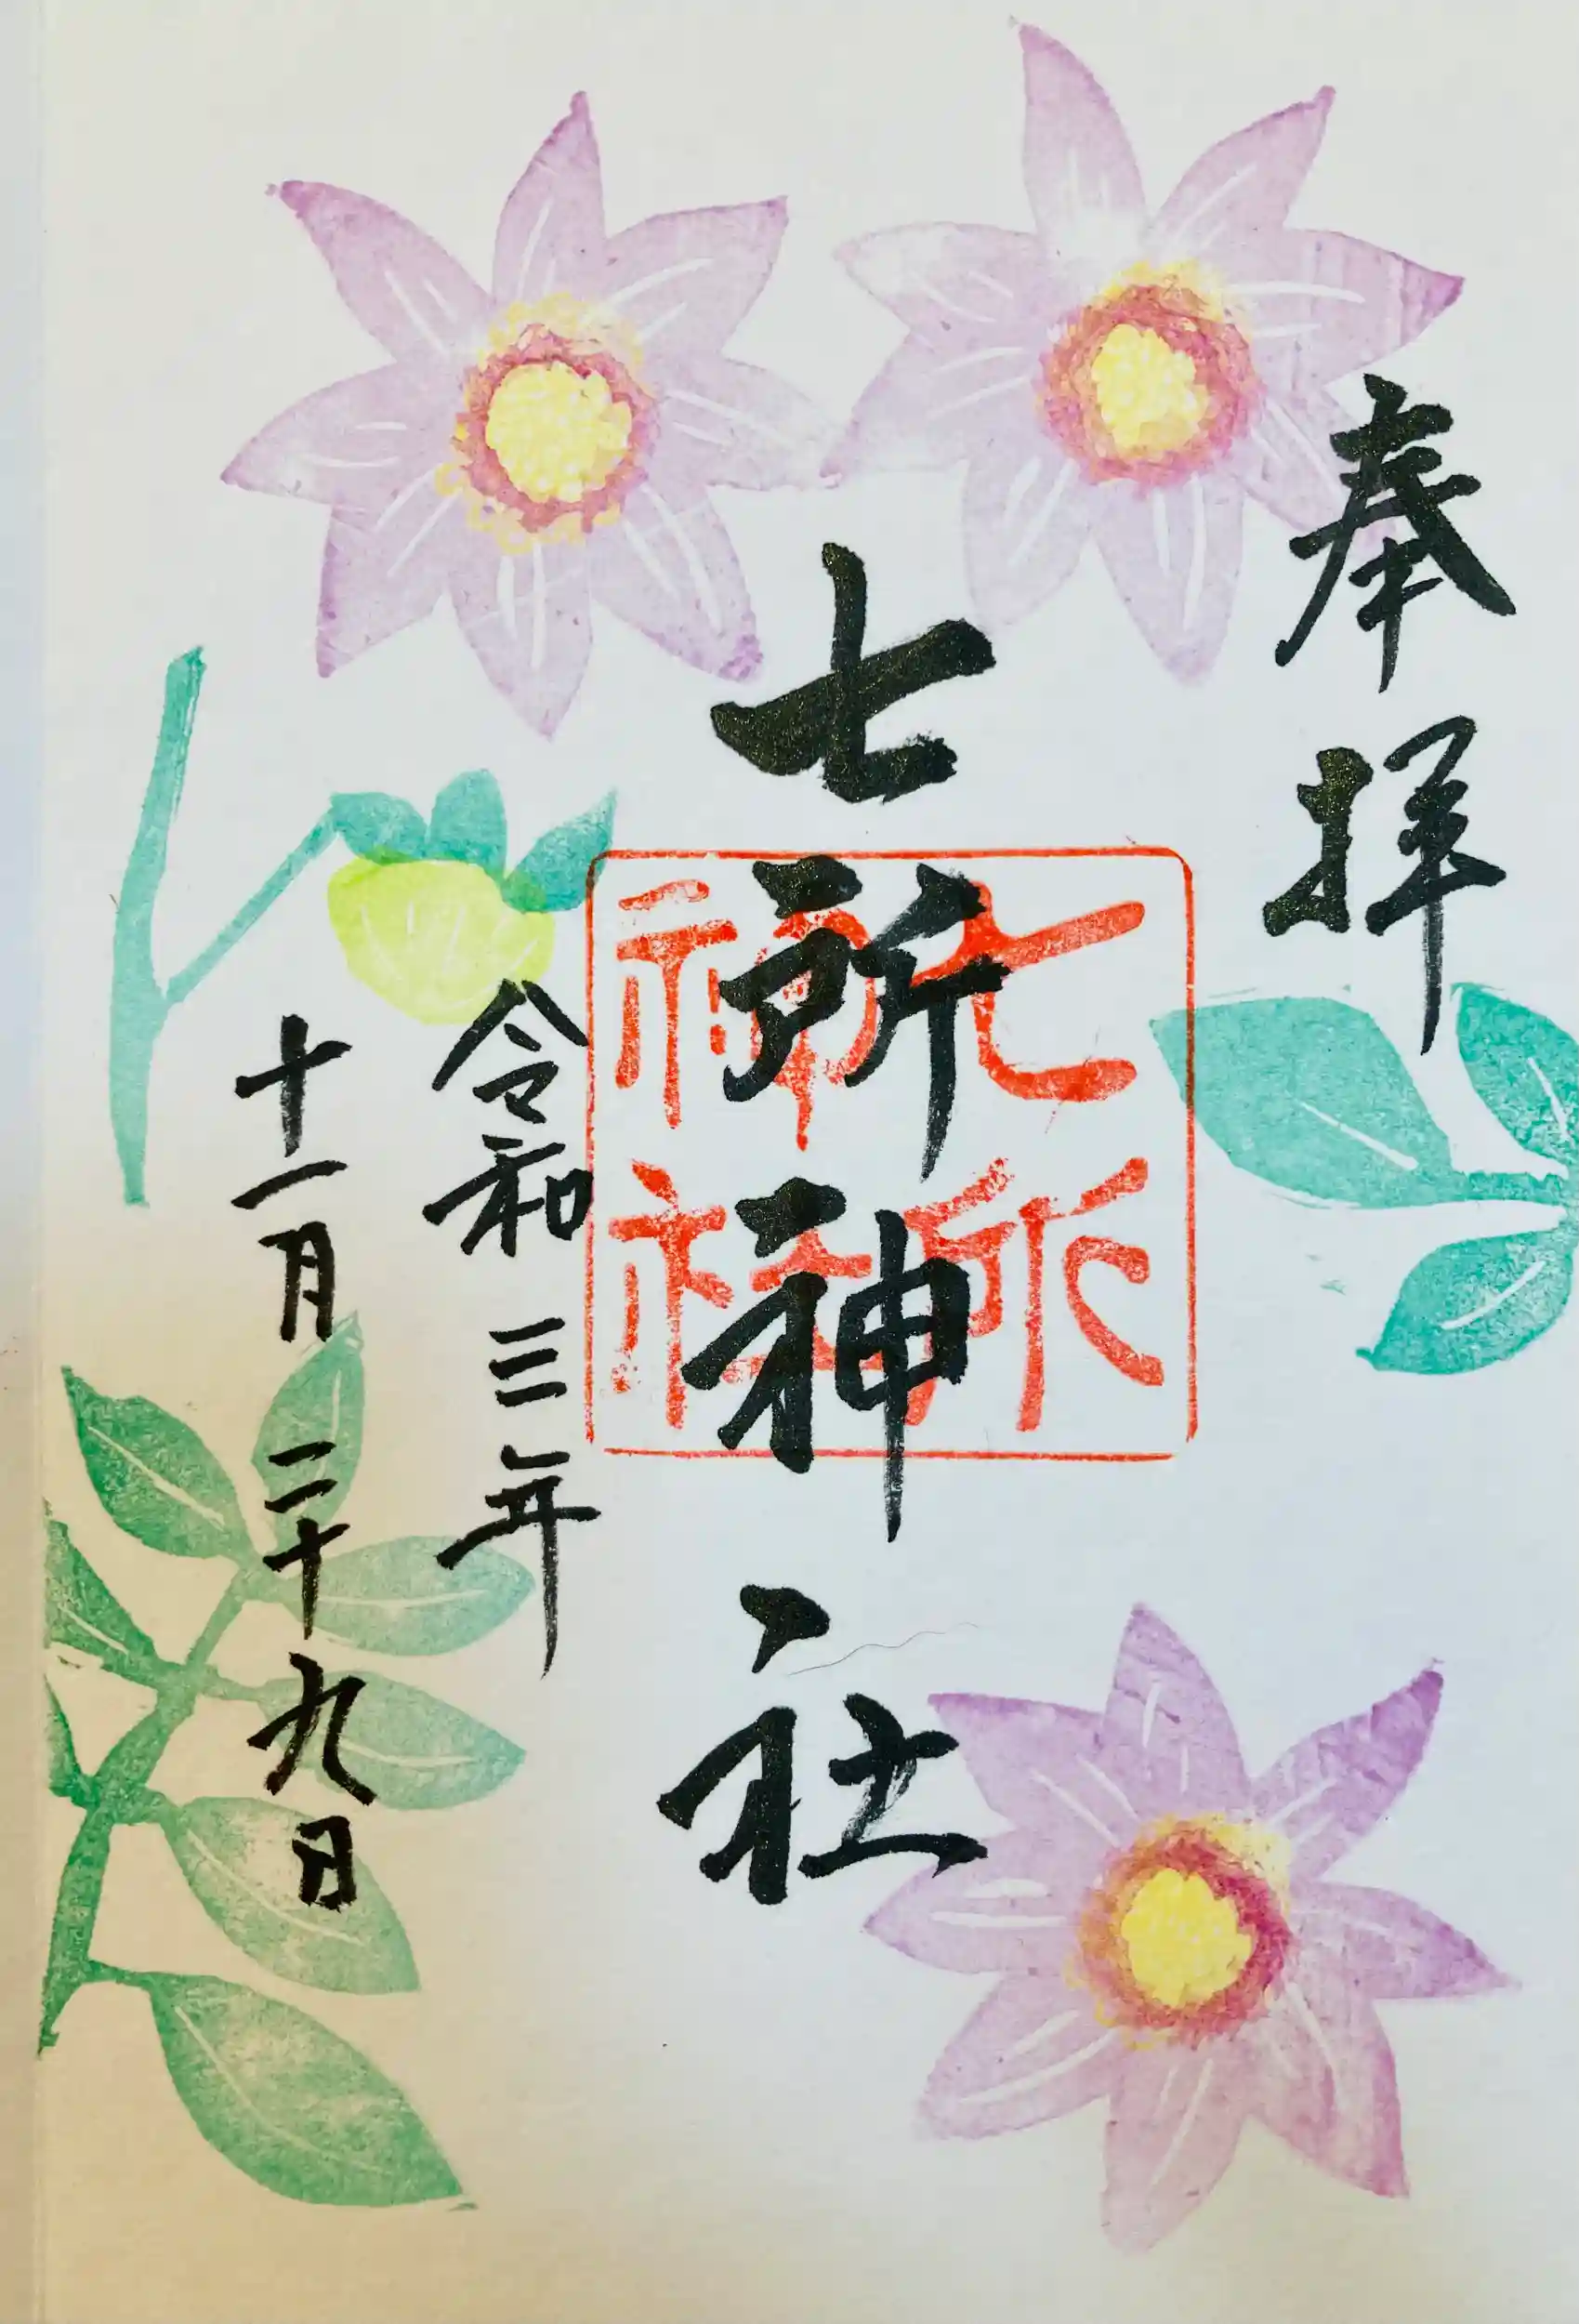 奉拝
七所神社
七所
神社
令和三年
十一月二十九日